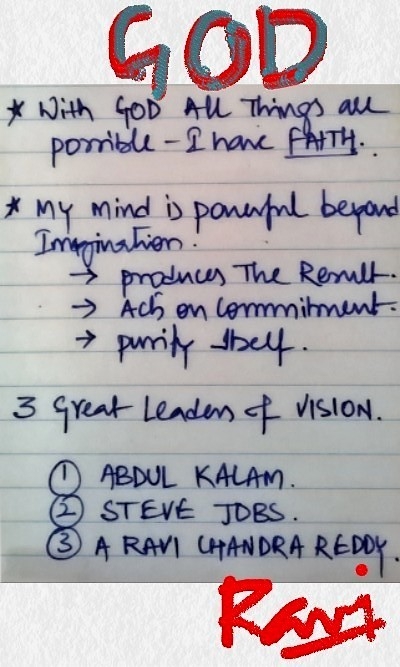 GOD
* With GOD All Things are
possible - I have FAITH.
* My mind is powerful beyond
Imagination.
→ produces The Result.
→ Acts on Commitment.
→ purify Itself.
3 Great Leaders of VISION.
① ABDUL KALAM.
② STEVE JOBS.
③ A RAVI CHANDRA REDDY.
Ravi